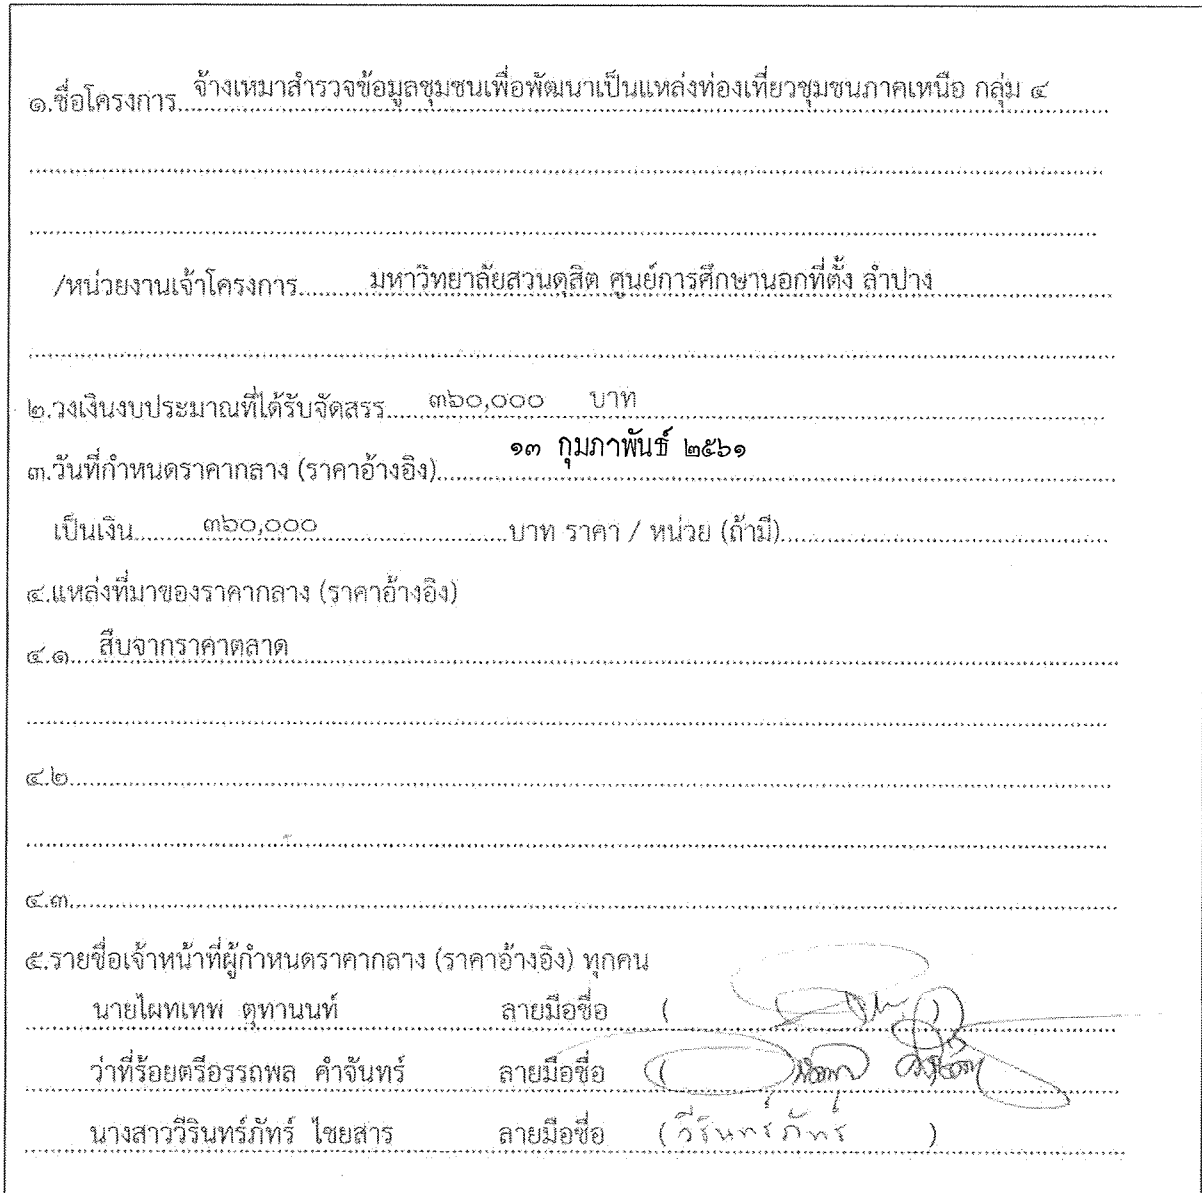 ๑.ชื่อโครงการ จ้างเหมาสำรวจข้อมูลชุมชนเพื่อพัฒนาเป็นแหล่งท่องเที่ยวชุมชนภาคเหนือ กลุ่ม ๔
/หน่วยงานเจ้าโครงการ มหาวิทยาลัยสวนดุสิต ศูนย์การศึกษานอกที่ตั้ง ลำปาง
๒.วงเงินงบประมาณที่ได้รับจัดสรร ๓๖๐,๐๐๐ บาท
๓.วันที่กำหนดราคากลาง (ราคาอ้างอิง) ๑๓ กุมภาพันธ์ ๒๕๖๑
เป็นเงิน ๓๖๐,๐๐๐ บาท ราคา / หน่วย (ถ้ามี)
๔.แหล่งที่มาของราคากลาง (ราคาอ้างอิง)
๔.๑ สืบจากราคาตลาด
๔.๒
๔.๓
๕.รายชื่อเจ้าหน้าที่ผู้กำหนดราคากลาง (ราคาอ้างอิง) ทุกคน
นายไผทเทพ ตุทานนท์ ลายมือชื่อ ( )
ว่าที่ร้อยตรีอรรถพล คำจันทร์ ลายมือชื่อ ( )
นางสาววีรินทร์ภัทร์ ไชยสาร ลายมือชื่อ ( วีรินทร์ภัทร์ )